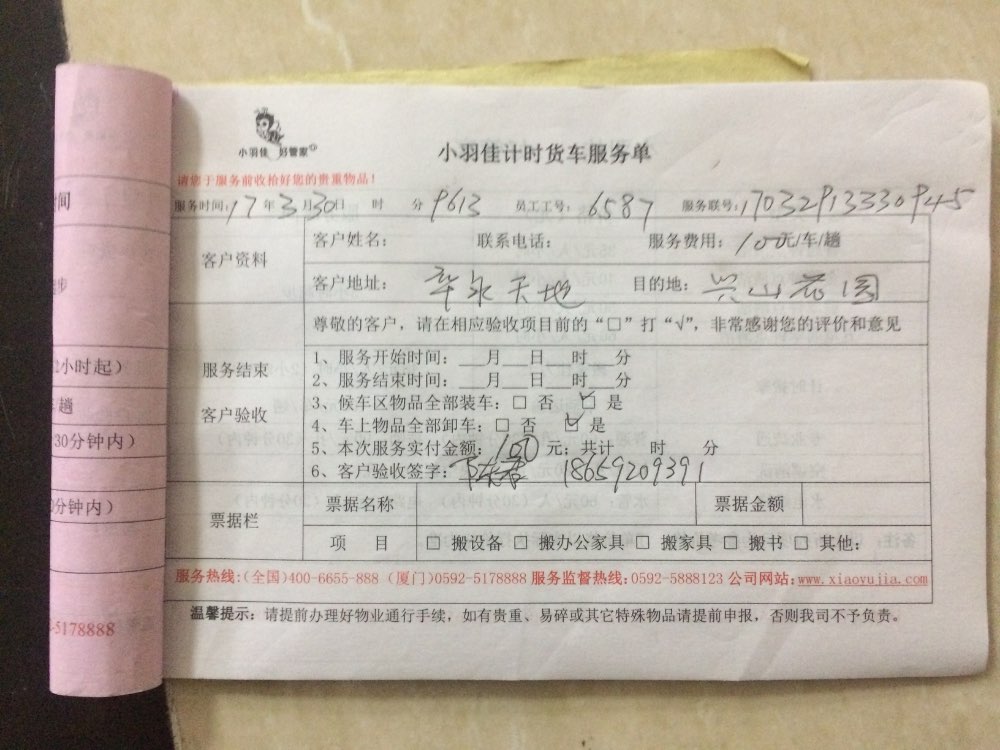 小羽佳 好管家
小羽佳计时货车服务单
请您于服务前收拾好您的贵重物品！
服务时间：17年3月30日 时 分 9613 员工工号：6587 服务联号：17032913330945
客户资料
客户姓名： 联系电话： 服务费用：100元/车/趟
客户地址：天地 目的地：兴山花园
尊敬的客户，请在相应验收项目前的“□”打“√”，非常感谢您的评价和意见
服务结束
客户验收
1、服务开始时间：___月___日 时 分
2、服务结束时间：___月___日 时 分
3、候车区物品全部装车：□ 否 ☑ 是
4、车上物品全部卸车：□ 否 ☑ 是
5、本次服务实付金额：100元；共计 时 分
6、客户验收签字： 18659209391
票据栏
票据名称 票据金额
项 目 □ 搬设备 □ 搬办公家具 □ 搬家具 □ 搬书 □ 其他：
服务热线：(全国)400-6655-888 (厦门)0592-5178888 服务监督热线：0592-5888123 公司网站：www.xiaoyujia.com
温馨提示：请提前办理好物业通行手续，如有贵重、易碎或其它特殊物品请提前申报，否则我司不予负责。
2小时起）
趟
30分钟内）
分钟内）
-5178888